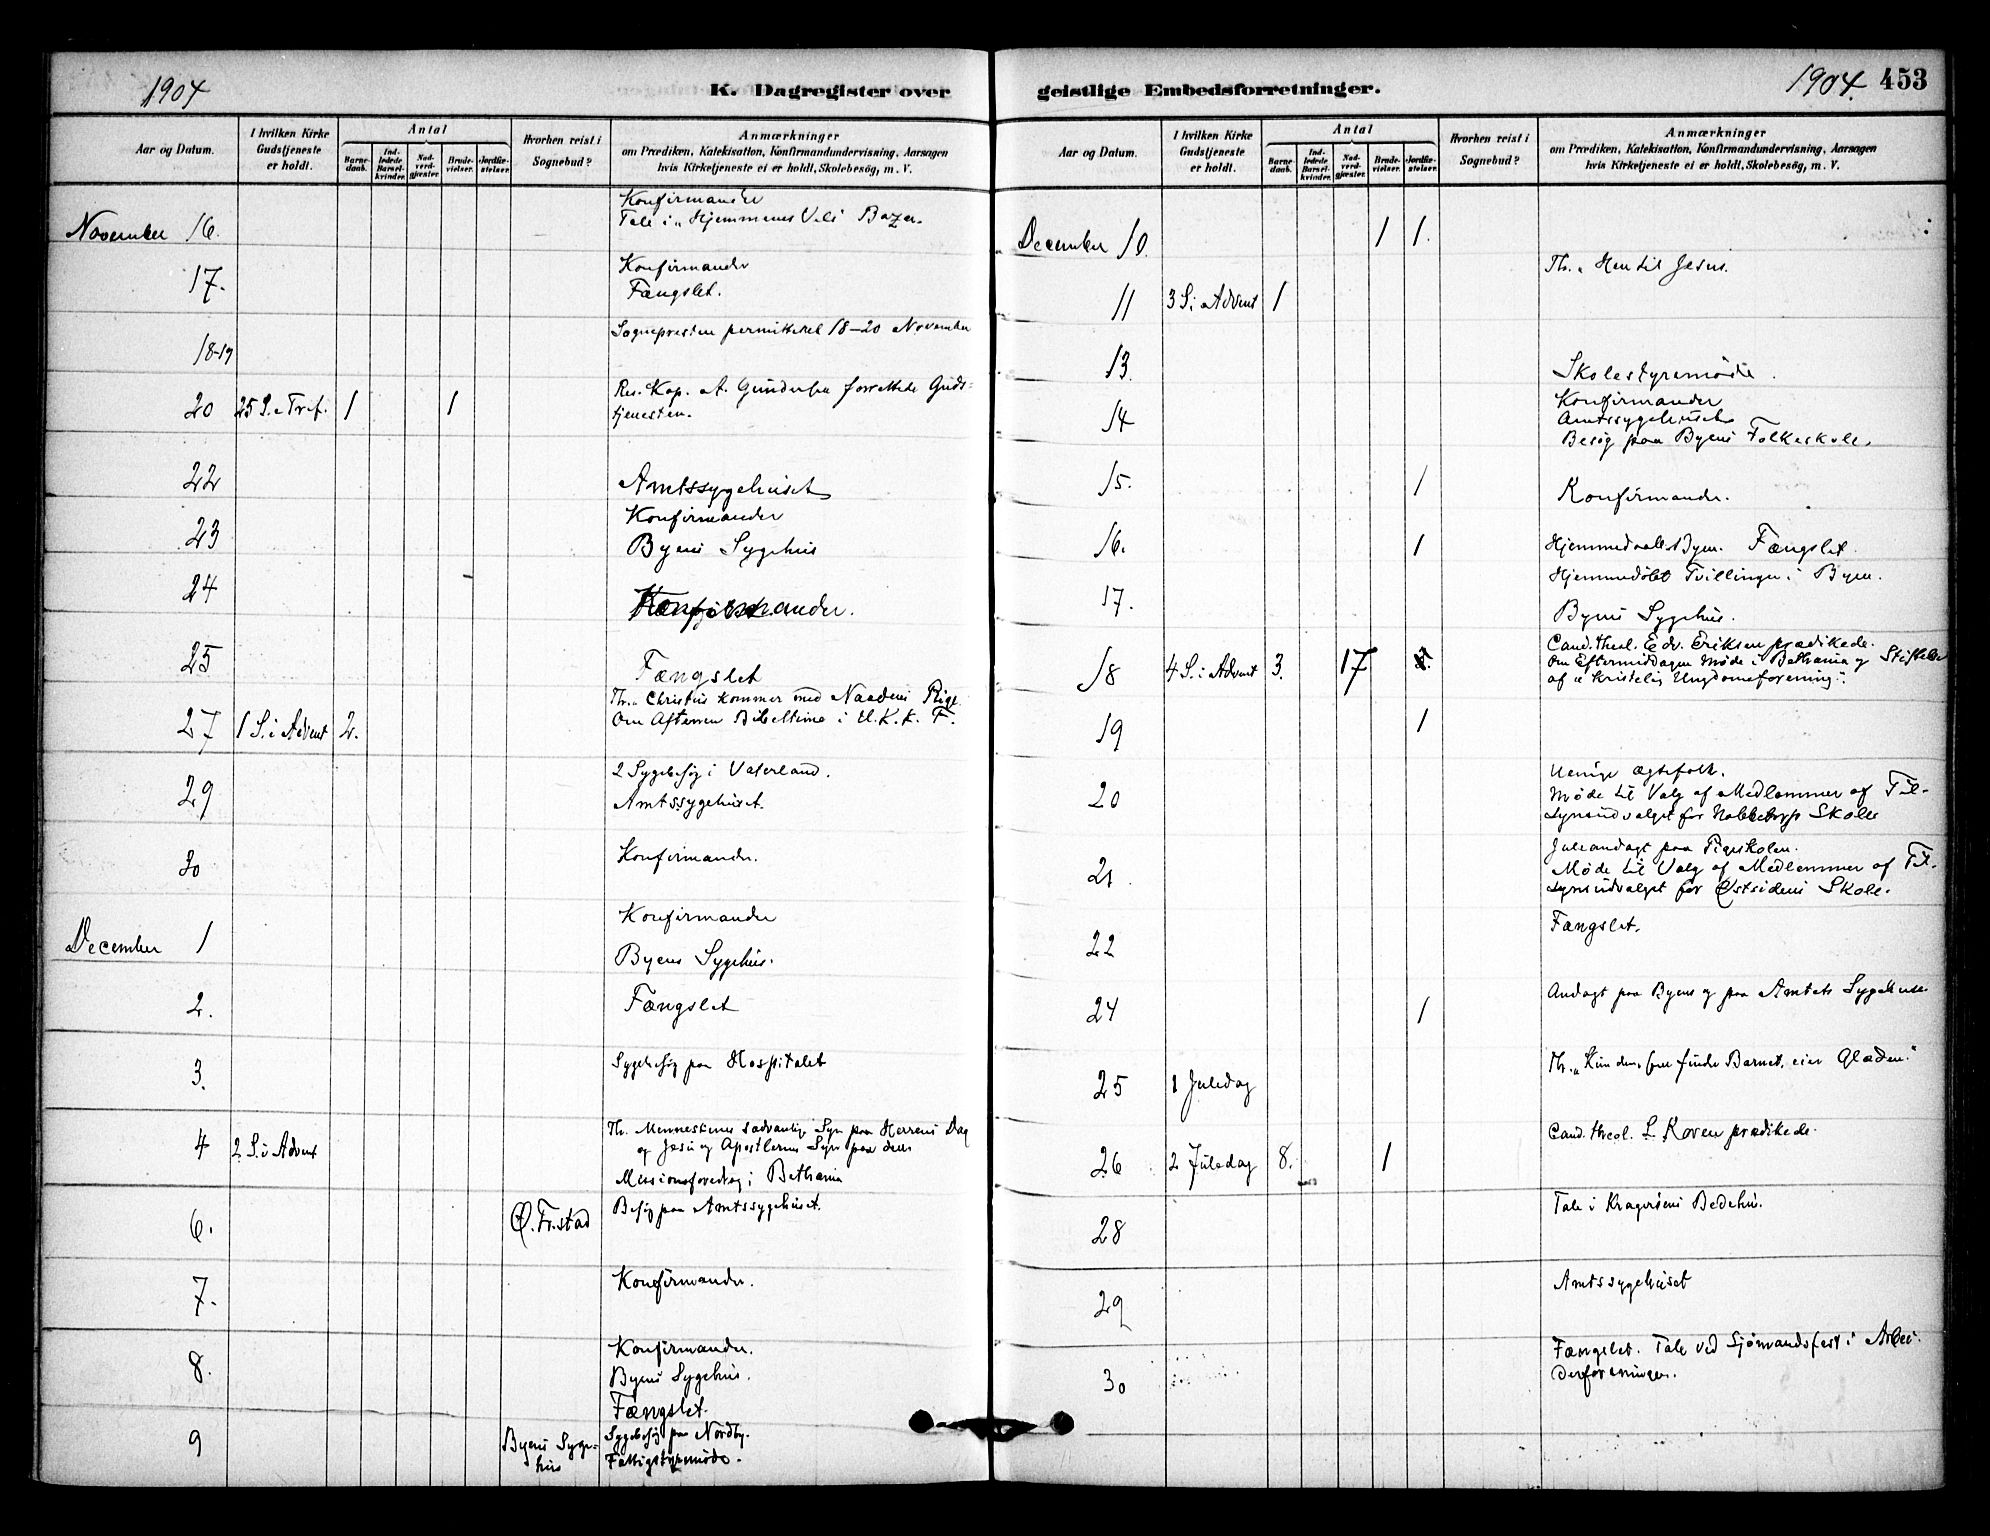 1904
K. Dagregister over
Aar og Datum.
I hvilken Kirke
Gudstjeneste
er holdt.
Antal
Barne-
daab.
Ind-
ledede
Barsel-
kvinder.
Nad-
verd-
gjæster.
Brude-
vielser.
Jordfæ-
stelser.
Hvorhen reist i
Sognebud?
Anmærkninger
om Prædiken, Katekisation, Konfirmandundervisning, Aarsagen
hvis Kirketjeneste ei er holdt, Skolebesøg, m. V.
Konfirmander
November 16. Tale i „Hjemmenes Vels Bazar.
Konfirmander
17. Fængslet.
Sognepresten permitteret 18-20 November
18-19
Res. Kap. A. Gundersen forrettede Guds-
20 25 S. e Tref. 1 1 tjenesten.
22 Amtssygehuset
Konfirmander
23 Byens Sygehus
24 Konfirmander.
25 Fængslet
Th. „Christus kommer med Naadens Rige.
27 1 S. i Advent 2. Om Aftenen Bibeltime i U.K.K.F.
2 Sygebesøg i Vaterland.
29 Amtssygehuset.
30 Konfirmander.
Konfirmander
December 1 Byens Sygehus.
2. Fængslet
3. Sygebesøg paa Hospitalet
Th. Menneskenes sædvanlig Syn paa Herrens Dag
4 2 S. i Advent og Jesu og Apostlernes Syn paa den
Missionsforedrag i Bethania
6. Ø. Fr.stad Besøg paa Amtssygehuset.
7. Konfirmander.
Konfirmander.
8. Byens Sygehus.
Fængslet.
9 Byens Syge- Sygebesøg paa Nordby.
hus Fattigstyremøde.
1904. 453
geistlige Embedsforretninger.
Aar og Datum.
I hvilken Kirke
Gudstjeneste
er holdt.
Antal
Barne-
daab.
Ind-
ledede
Barsel-
kvinder.
Nad-
verd-
gjæster.
Brude-
vielser.
Jordfæ-
stelser.
Hvorhen reist i
Sognebud?
Anmærkninger
om Prædiken, Katekisation, Konfirmandundervisning, Aarsagen
hvis Kirketjeneste ei er holdt, Skolebesøg, m. V.
December 10. 1 1.
Th. „Hen til Jesus.
11 3 S. i Advent 1
13. Skolestyremøde.
Konfirmander
14 Amtssygehuset
Besøg paa Byens Folkeskole.
15. 1 Konfirmander.
16. 1 Hjemmedøbt i Byen. Fængslet.
Hjemmedøbt Tvillinger i Byen.
17. Byens Sygehus.
Cand. theol. Edv. Eriksen prædikede.
18 4 S. i Advent 3. 17 Om Eftermiddagen Møde i Bethania og Stiftelse
af „Kristelig Ungdomsforening".
19 1
Uenige Ægtefolk.
20 Møde til Valg af Medlemmer af Til-
synsudvalget for Skole
Juleandagt paa Pigeskolen.
21 Møde til Valg af Medlemmer af Til-
synsudvalget for Østsidens Skole.
22 Fængslet.
24 1 Andagt paa Byens og paa Amtets Sygehuse
Th. „Kun den, som finder Barnet, eier Glæden."
25 1 Juledag
Cand. theol. L. Koren prædikede.
26 2 Juledag 8. 1
28 Tale i Kragerøens Bedehus.
29 Amtssygehuset
Fængslet. Tale ved Sjømandsfest i Arbei-
30 derforeningen.